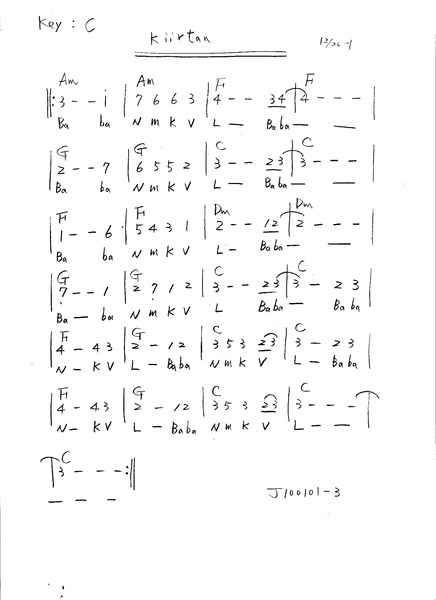 Key : C
Kiirtan
12/26-1
Am Am F F
‖: 3 - - i | 7 6 6 3 | 4 - - 34 | 4 - - -
Ba ba N m K V L — Baba — —
G G C C
2 - - 7 | 6 5 5 2 | 3 - - 23 | 3 - - -
Ba ba N m K V L — Baba — —
F F Dm Dm
1 - - 6 | 5 4 3 1 | 2 - - 12 | 2 - - -
Ba ba N m K V L - Baba — —
G G C C
7 - - 1 | 2 7 1 2 | 3 - - 23 | 3 - 2 3
Ba — ba N m K V L Baba — Baba
F G C C
4 - 43 | 2 - 12 | 3 5 3 23 | 3 - 23
N - KV L - Baba N m K V L - Baba
F G C C
4 - 43 | 2 - 12 | 3 5 3 23 | 3 - - -
N - KV L - Baba N m K V L - -
C
3 - - - :‖
— — —
J100101-3